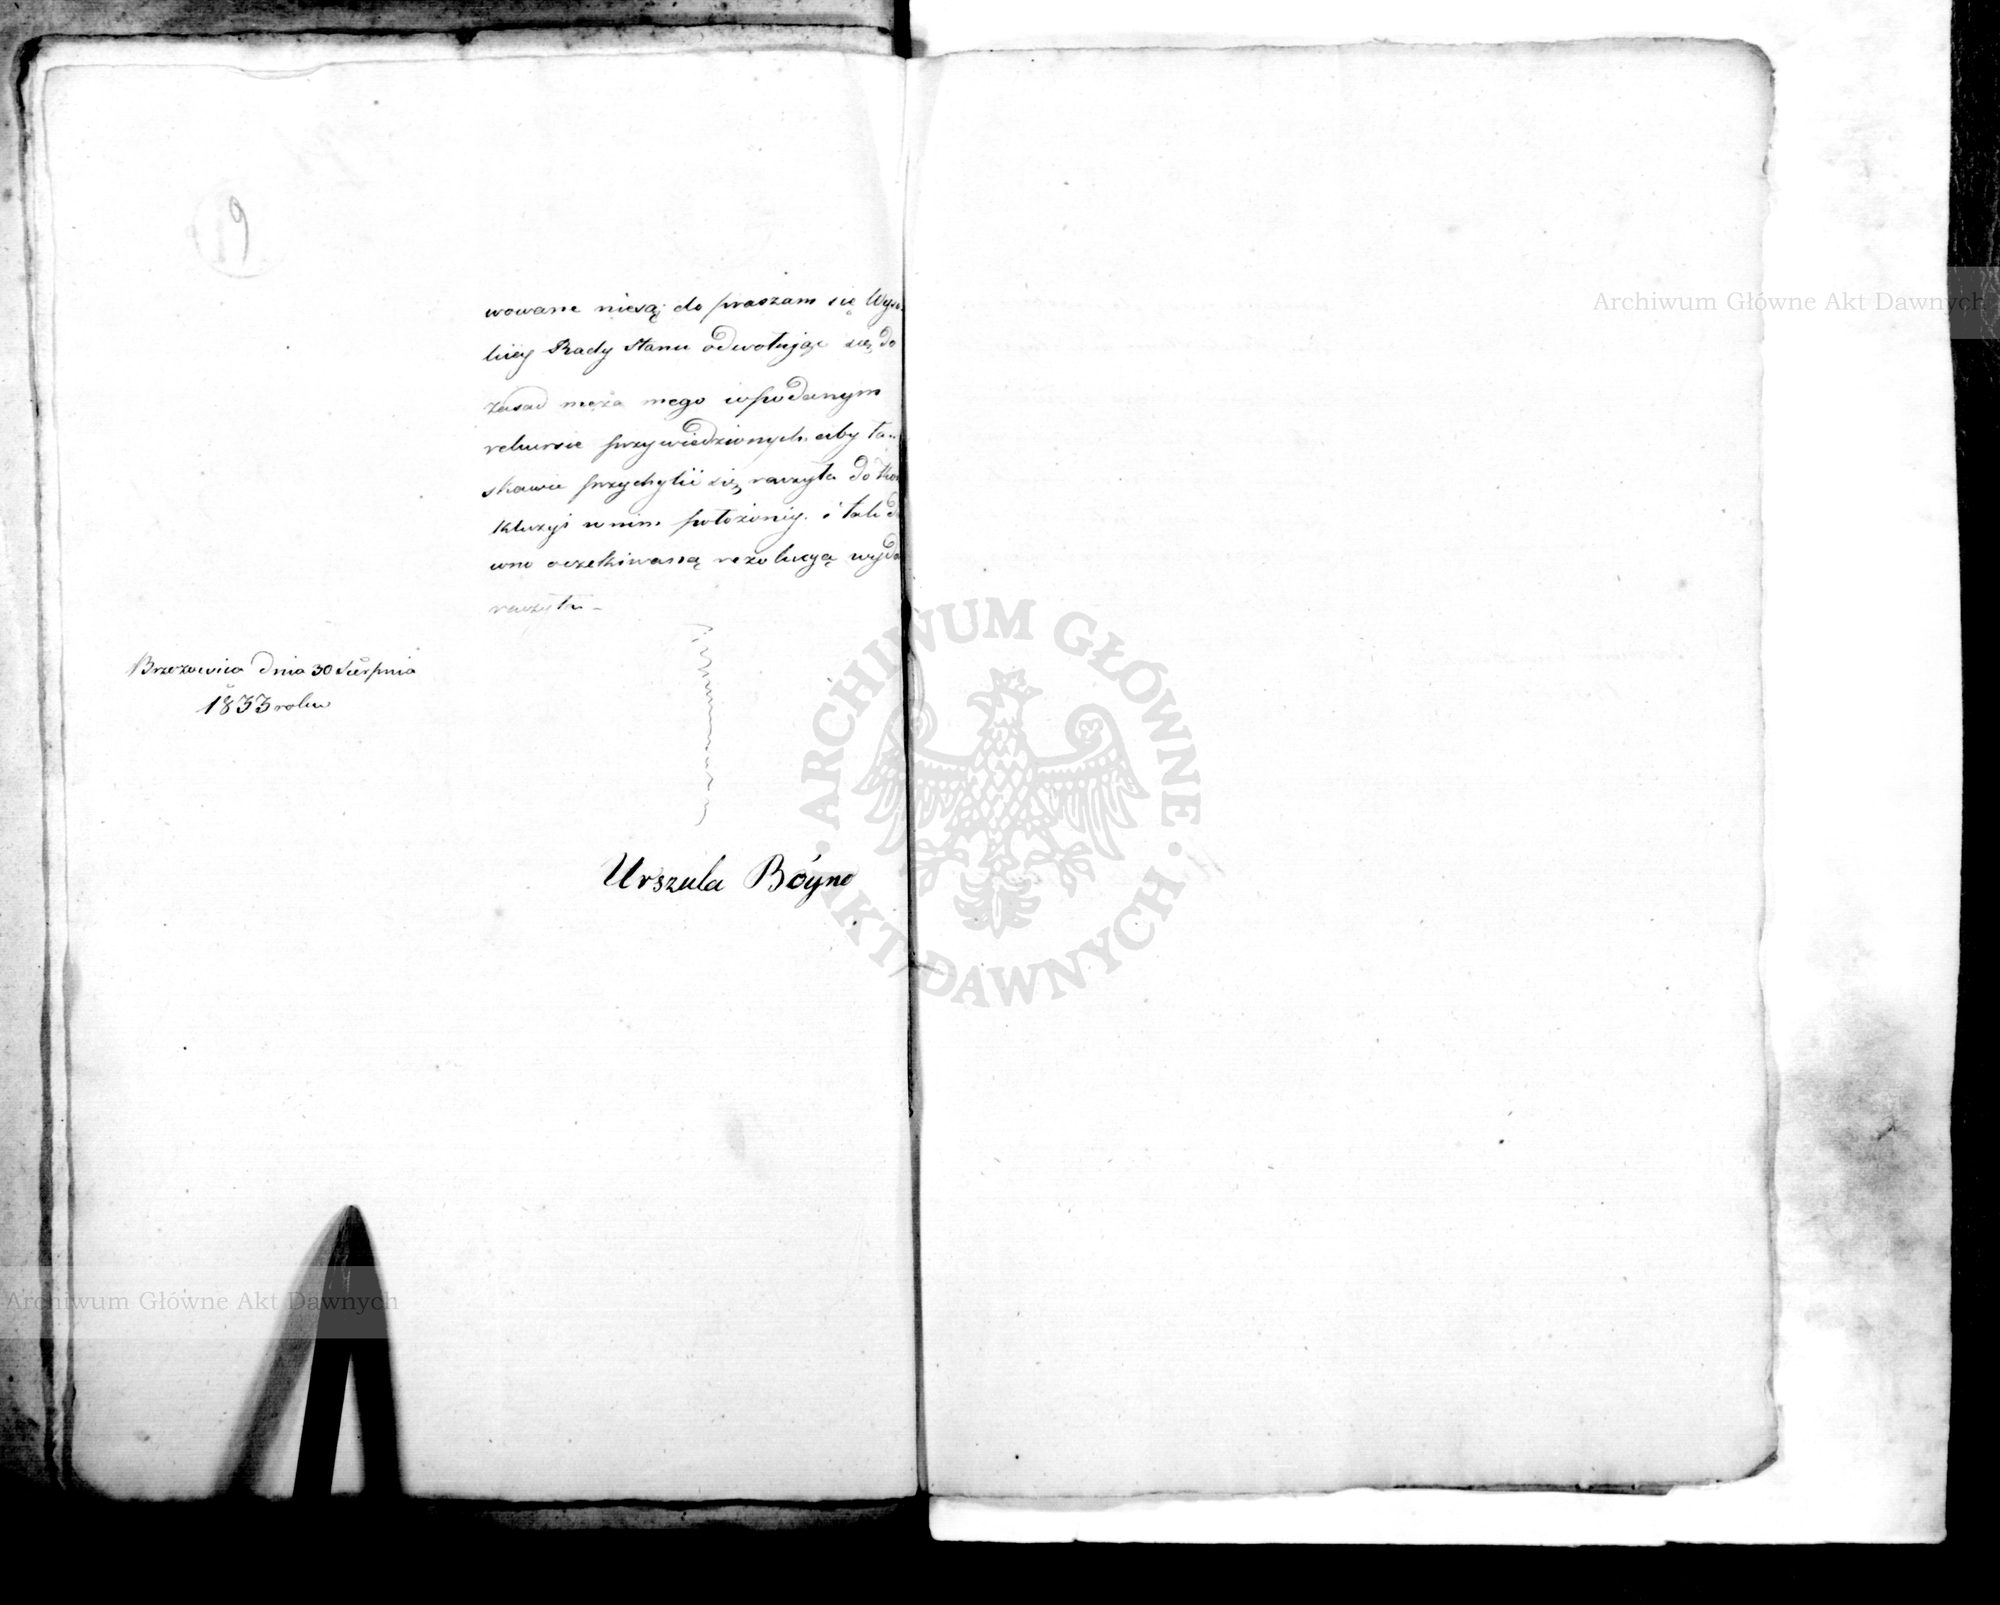 9
wowane niesą; do praszam się Wyso
kiéy Rady Stanu odwołując się do
zasad męża mego wpodanym
rekursie przywiedzionych. aby ła-
skawie przychylić się raczyła do Kon
kluzyi wnim położonéy. i tak da
wno oczekiwaną rezolucyą wyda
raczyła –
Brzezowica dnia 30 Sierpnia
1833 roku
Urszula Bóyno
Archiwum Główne Akt Dawnych
ARCHIWUM GŁÓWNE AKT DAWNYCH
Archiwum Główne Akt Dawnych